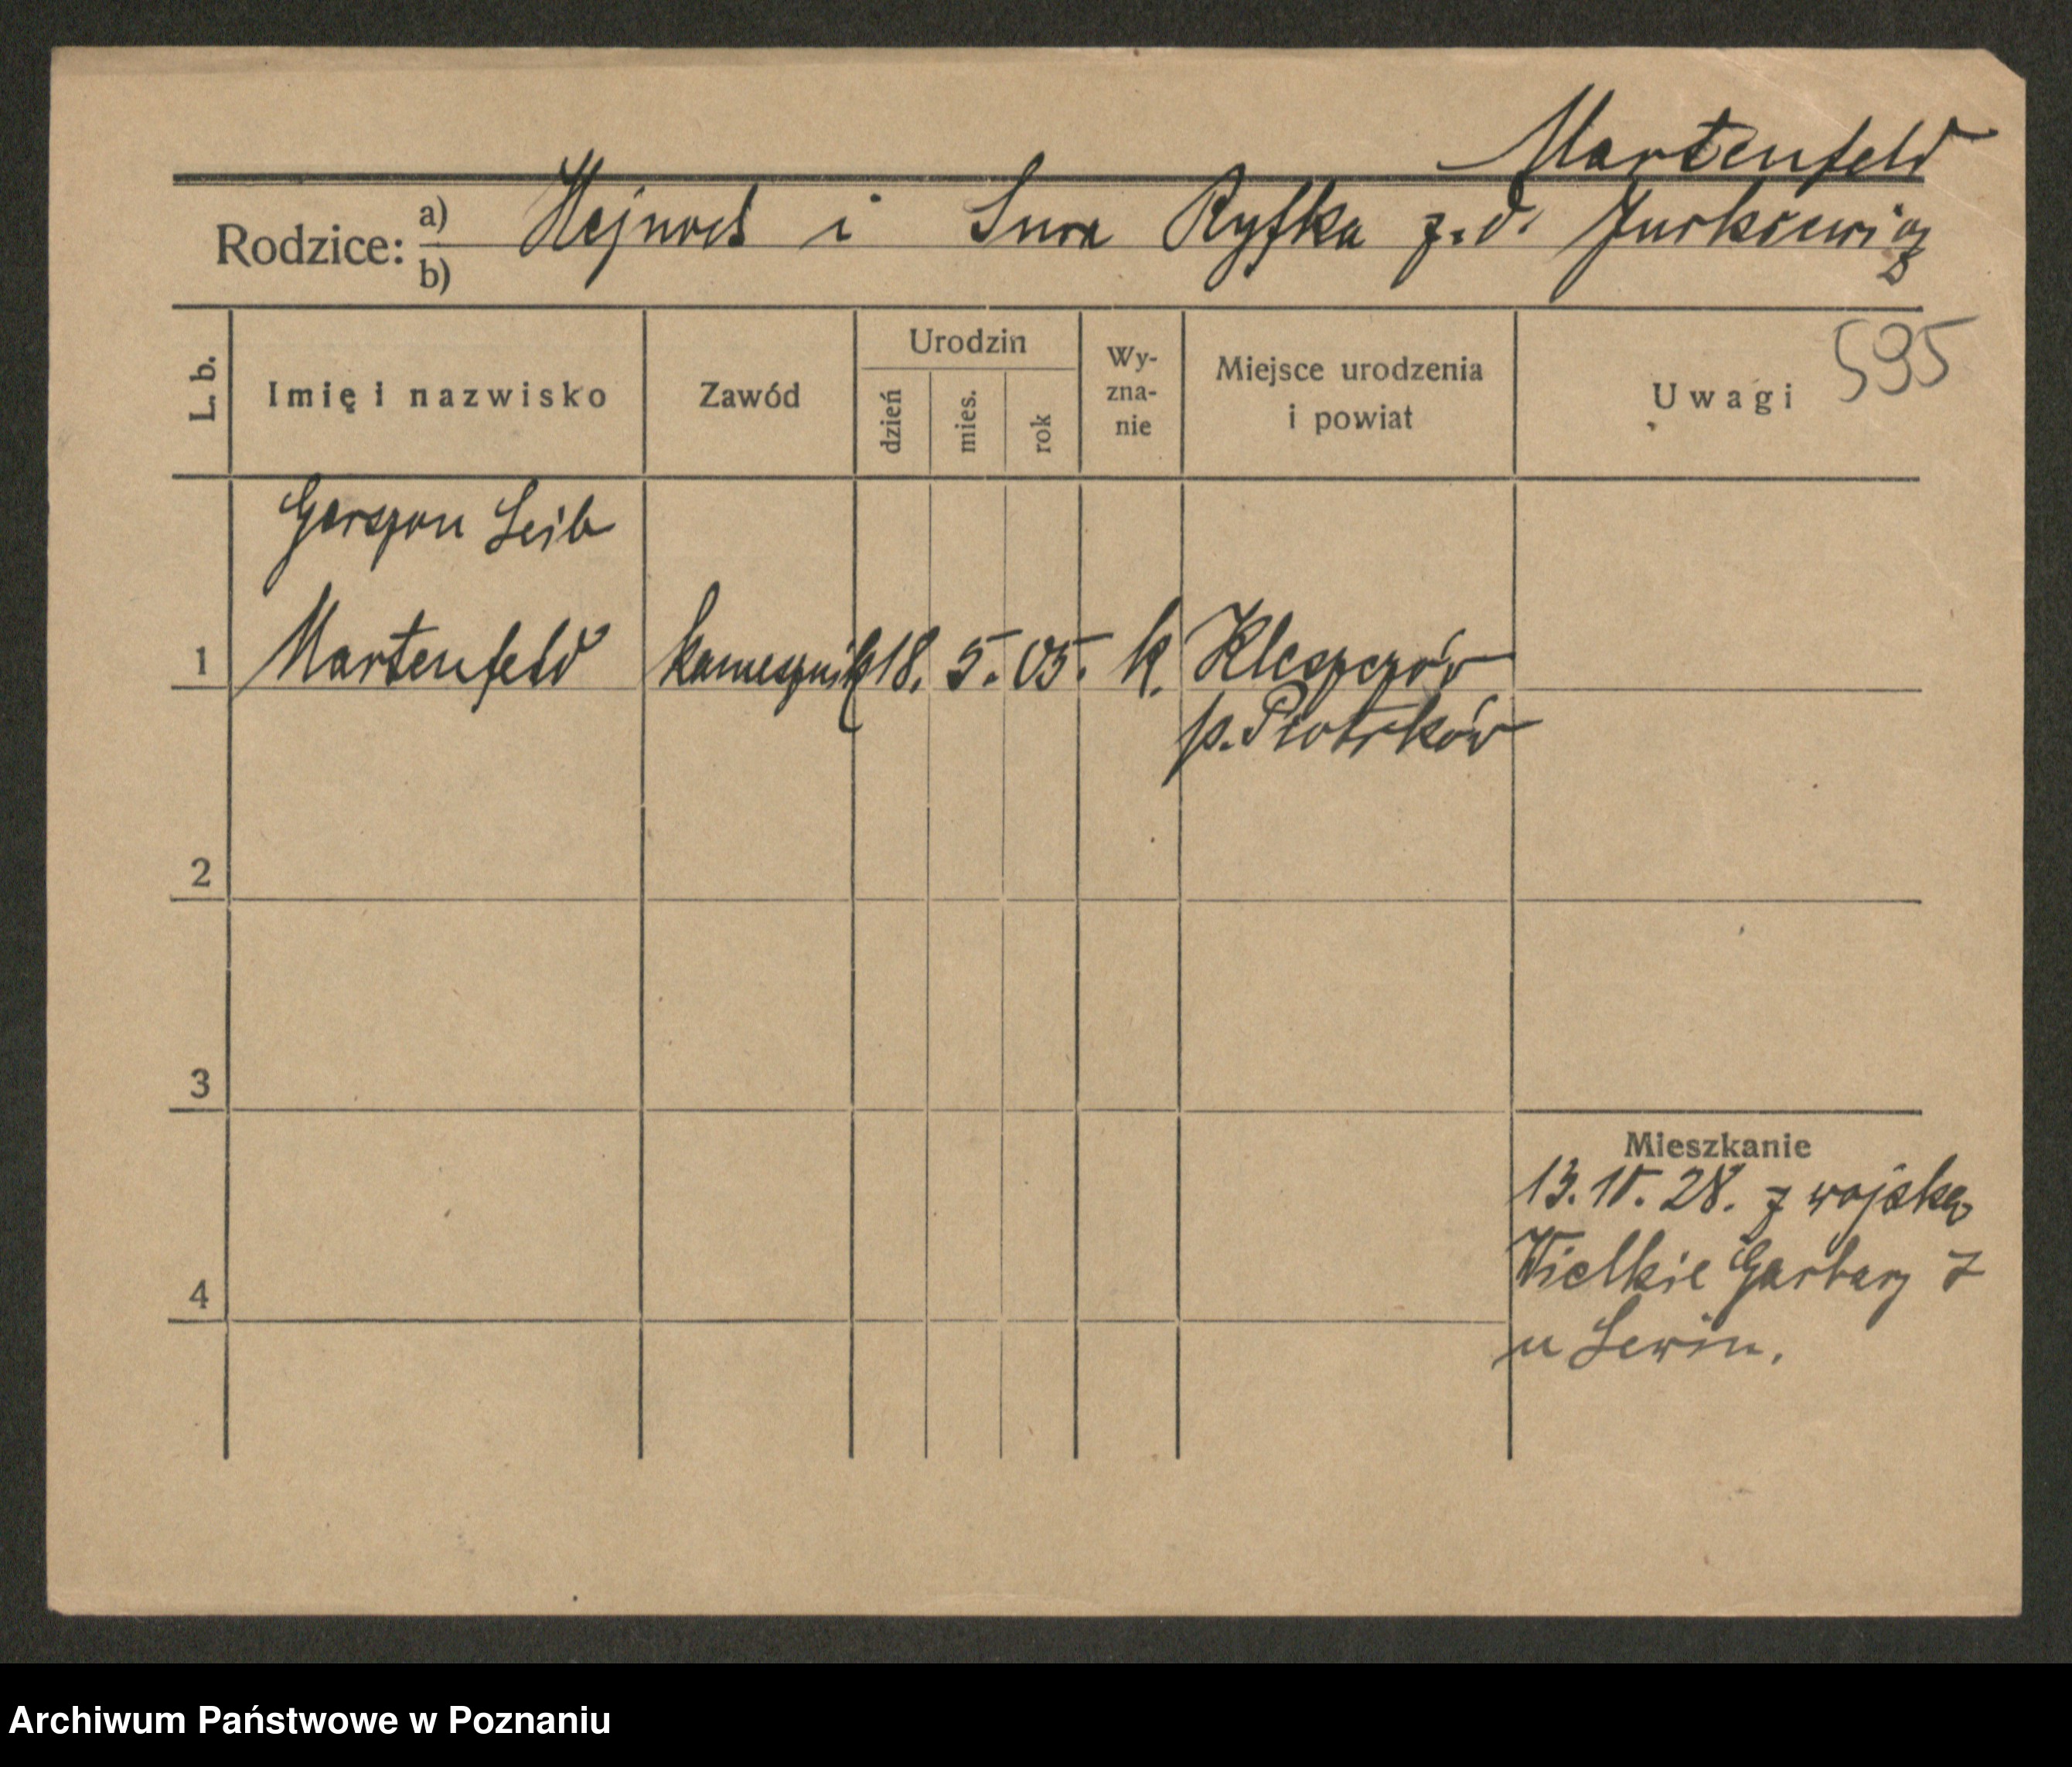 Martenfeld
Rodzice: a) Hejnoch i Sura Ryfka z.d. Jurkiewicz
b)
L. b. Imię i nazwisko Zawód Urodzin dzień mies. rok Wy-zna-nie Miejsce urodzenia i powiat Uwagi 595
Gerszon Leib
1 Martenfeld kamasznik 18. 5. 05. k. Kleszczów
p. Piotrków
2
3
Mieszkanie
13. 10. 28. z wojska
Wielkie Garbary 7
4
u Lewin.
Archiwum Państwowe w Poznaniu